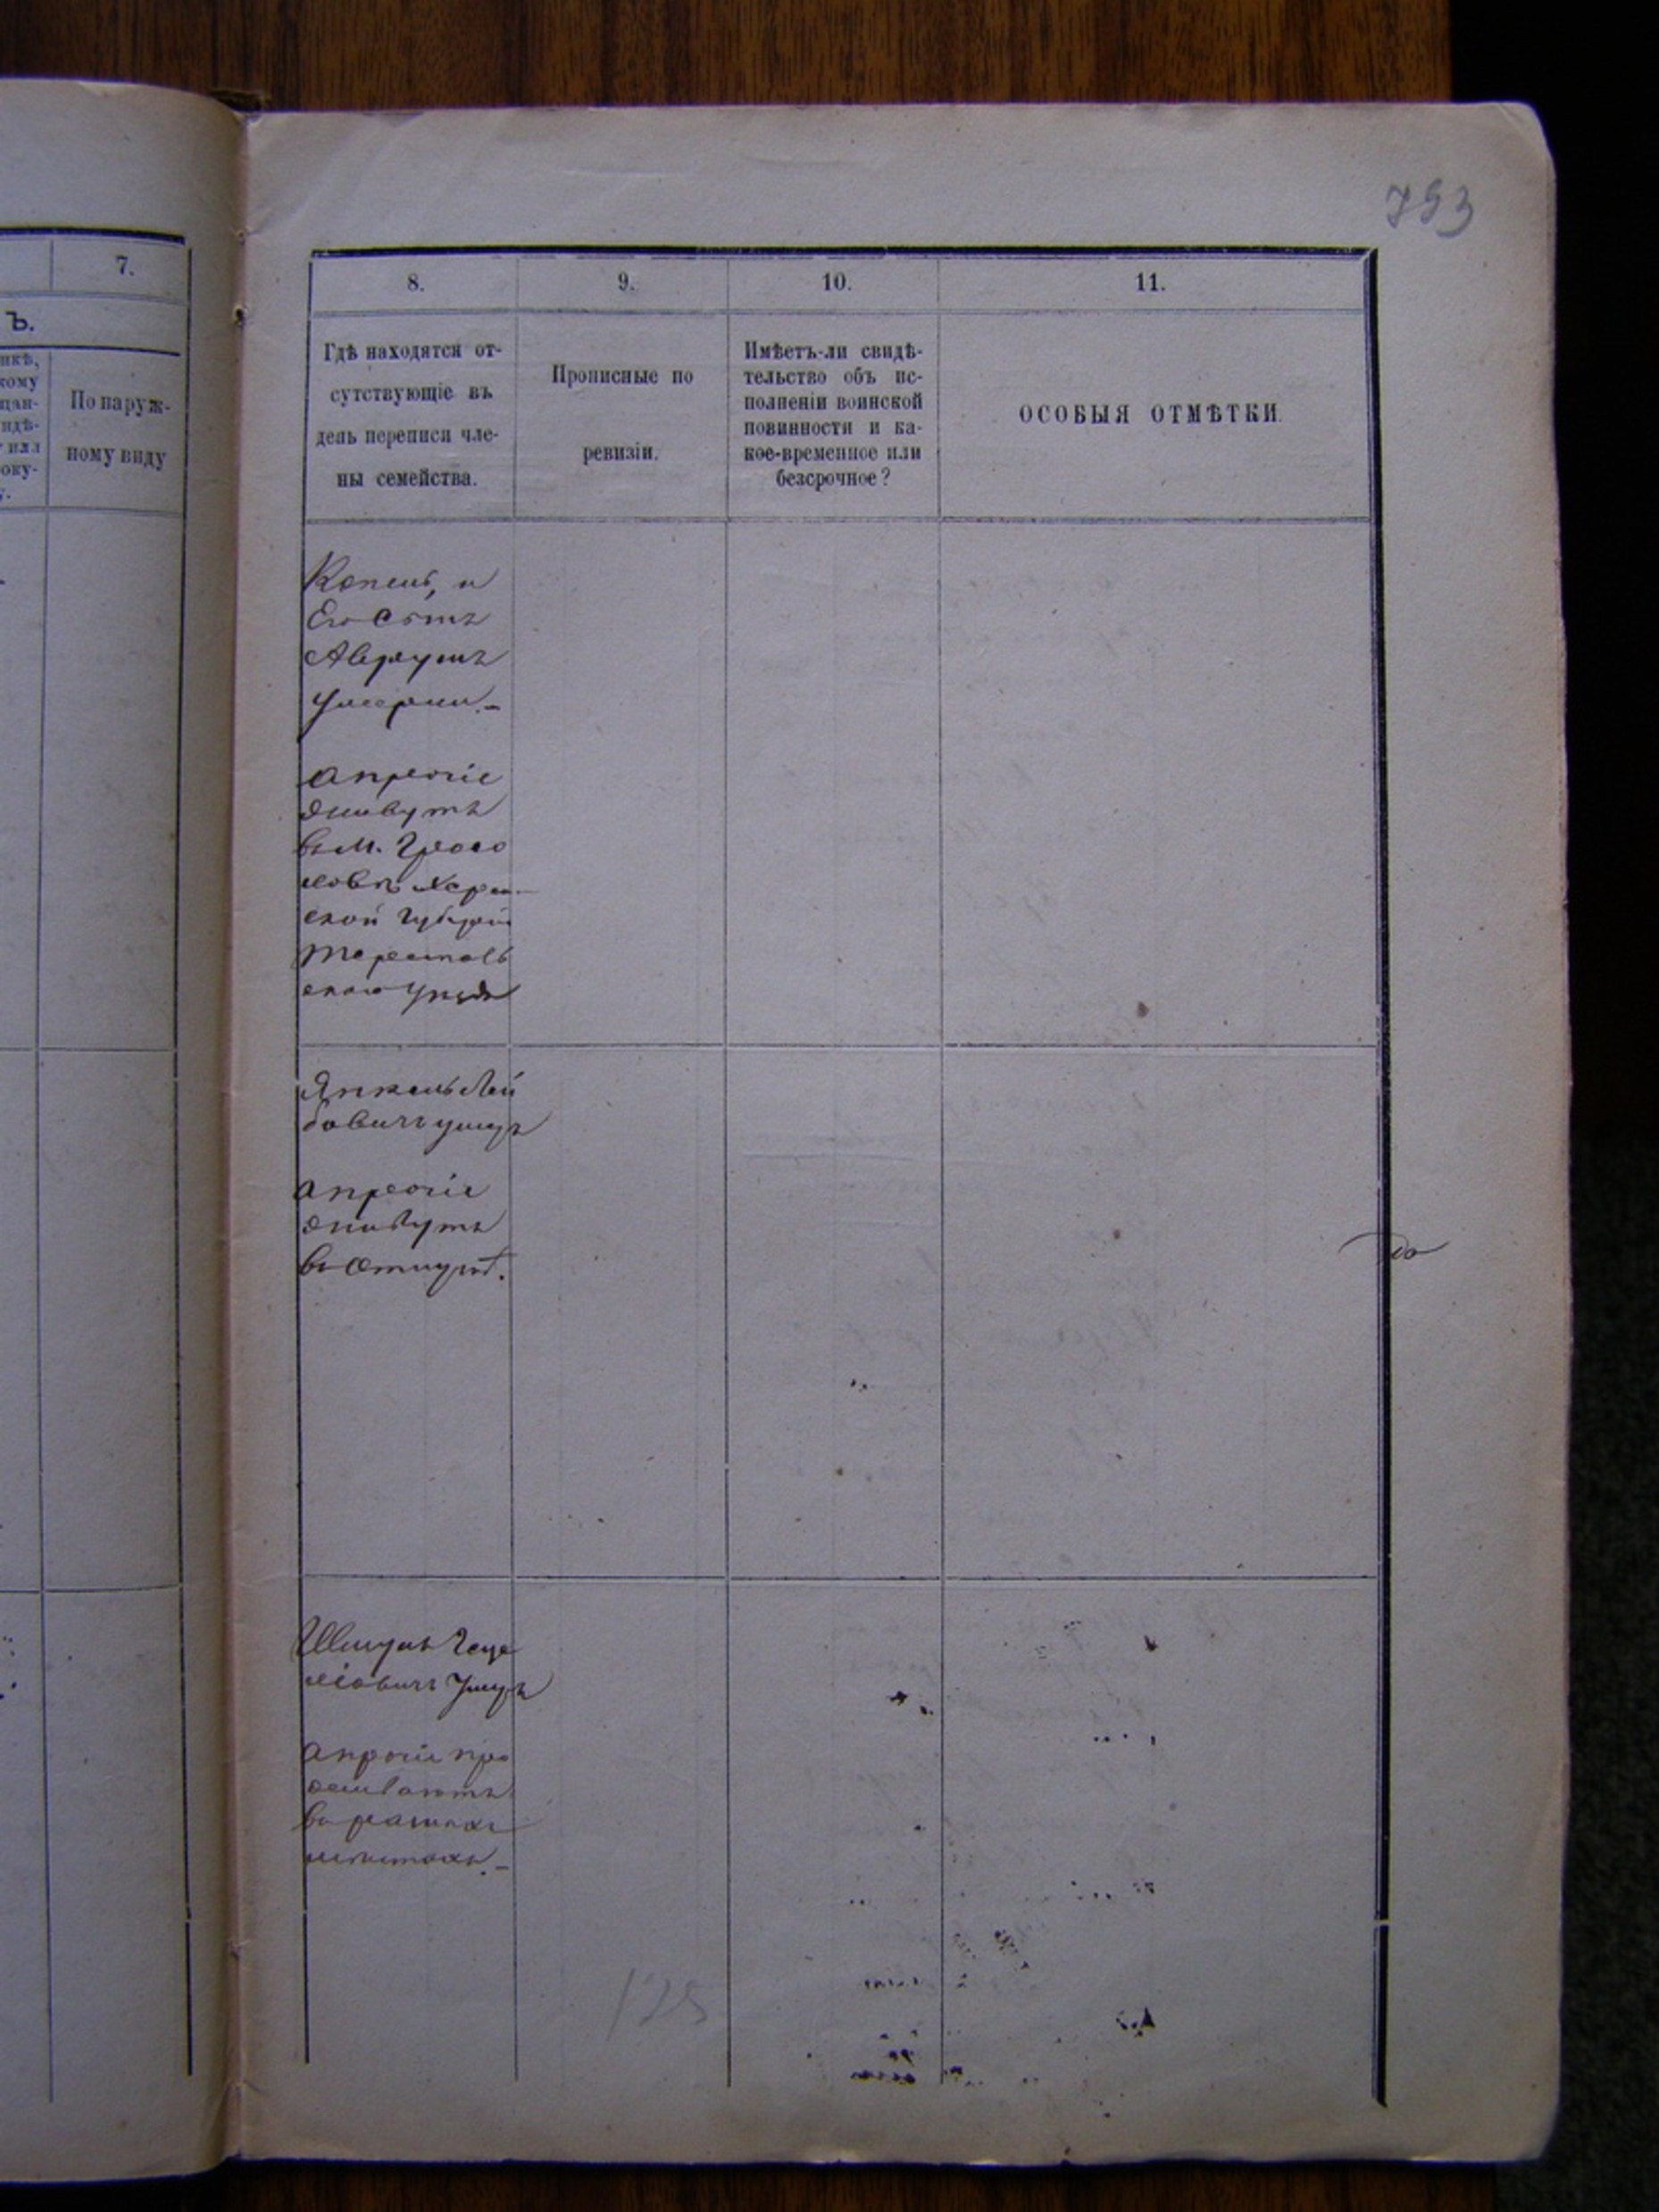 793
7.
Ъ.
По наруж-
ному виду
8.
9.
10.
11.
Гдѣ находятся от-
сутствующіе въ
день переписи чле-
ны семейства.
Прописные по
ревизіи.
Имѣетъ-ли свидѣ-
тельство объ ис-
полненіи воинской
повинности и ка-
кое-временное или
безсрочное?
ОСОБЫЯ ОТМѢТКИ.
Копель, и
Его Сынъ
Аврумъ
умерли.-
а прочіе
живутъ
въ м. Гросу
ловѣ Херсон-
ской Губерніи
Тираспольс
скаго Уѣзда
Янкель Лей
бовичъ умеръ
а прочіе
живутъ
въ
Шмуль Геце
ліовичъ Умеръ
а прочіе про
живаютъ
въ разныхъ
мѣстахъ.-
125